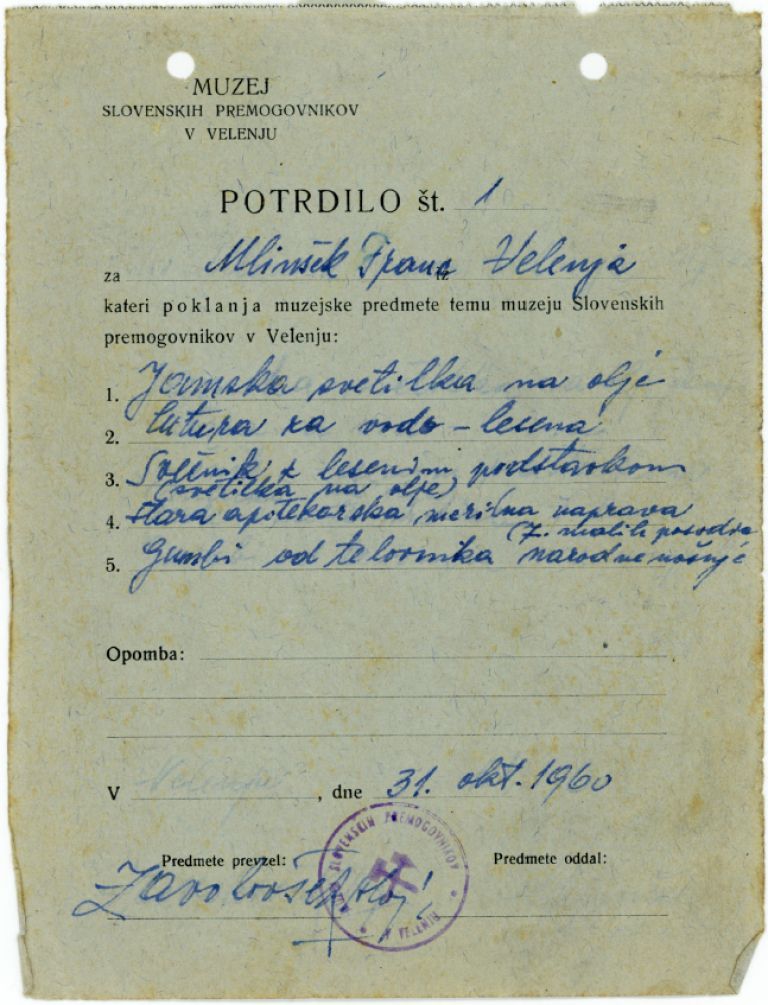 MUZEJ
SLOVENSKIH PREMOGOVNIKOV
V VELENJU
POTRDILO št. 1
za Mlinšek Franc iz Velenja
kateri poklanja muzejske predmete temu muzeju Slovenskih
premogovnikov v Velenju:
1. Jamska svetilka na olje
2. lutura za vodo - lesena
3. Svečnik z lesenim podstavkom
(svetilka na olje)
4. Stara apotekarska merilna naprava
(7. malih posodic
5. Gumbi od telovnika narodne nošnje
Opomba:
V Velenju, dne 31. okt. 1960
Predmete prevzel: Predmete oddal:
SLOVENSKIH PREMOGOVNIKOV
V VELENJU